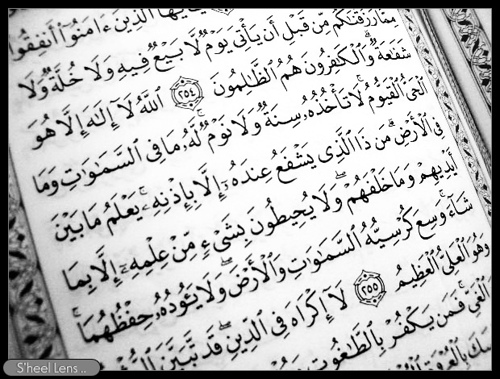 يَـٰٓأَيُّهَا ٱلَّذِينَ ءَامَنُوٓا۟ أَنفِقُوا۟
مِمَّا رَزَقْنَـٰكُم مِّن قَبْلِ أَن يَأْتِىَ يَوْمٌ لَّا بَيْعٌ فِيهِ وَلَا خُلَّةٌ وَلَا
شَفَـٰعَةٌ وَٱلْكَـٰفِرُونَ هُمُ ٱلظَّـٰلِمُونَ ٢٥٤ ٱللَّهُ لَآ إِلَـٰهَ إِلَّا هُوَ
ٱلْحَىُّ ٱلْقَيُّومُ لَا تَأْخُذُهُۥ سِنَةٌ وَلَا نَوْمٌ لَّهُۥ مَا فِى ٱلسَّمَـٰوَٰتِ وَمَا
فِى ٱلْأَرْضِ مَن ذَا ٱلَّذِى يَشْفَعُ عِندَهُۥٓ إِلَّا بِإِذْنِهِۦ يَعْلَمُ مَا بَيْنَ
أَيْدِيهِمْ وَمَا خَلْفَهُمْ وَلَا يُحِيطُونَ بِشَىْءٍ مِّنْ عِلْمِهِۦٓ إِلَّا بِمَا
شَآءَ وَسِعَ كُرْسِيُّهُ ٱلسَّمَـٰوَٰتِ وَٱلْأَرْضَ وَلَا يَـُٔودُهُۥ حِفْظُهُمَا
وَهُوَ ٱلْعَلِىُّ ٱلْعَظِيمُ ٢٥٥ لَآ إِكْرَاهَ فِى ٱلدِّينِ قَد تَّبَيَّنَ
ٱلْغَىِّ فَمَن يَكْفُرْ بِٱلطَّـٰغُوتِ
بِٱلْعُرْوَةِ
S'heel Lens..